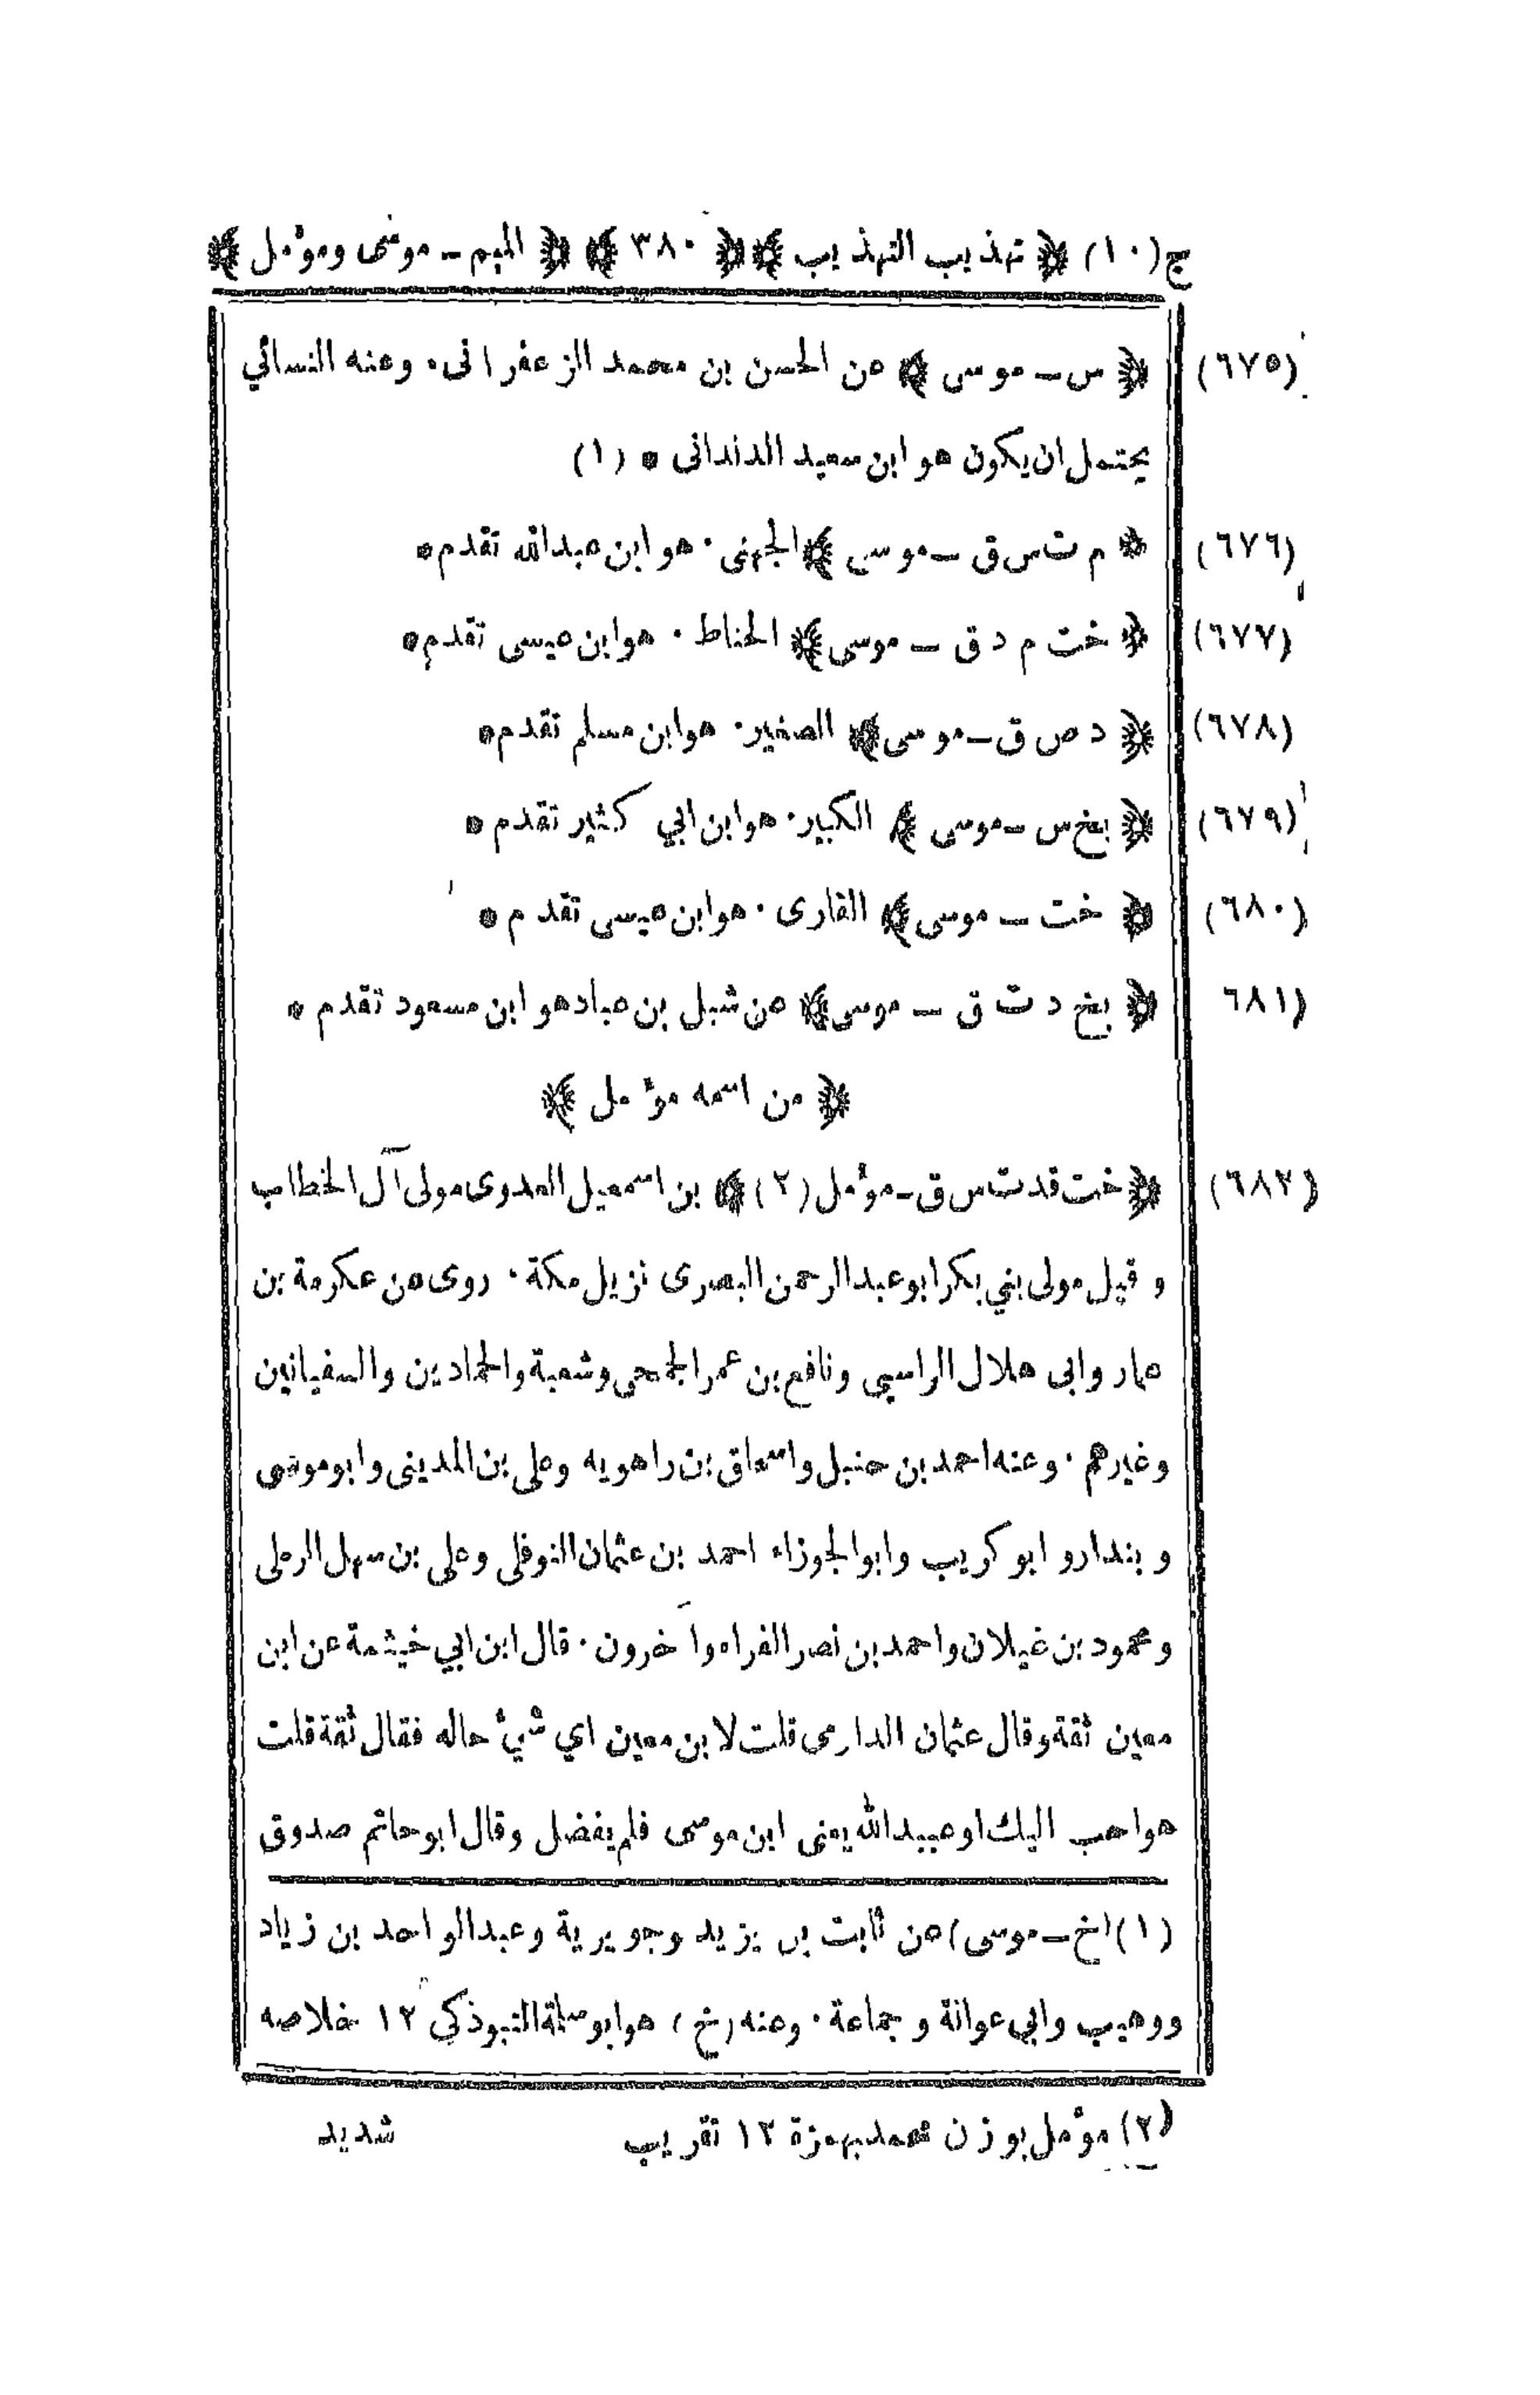 ج (١٠) ﴿ تهذيب التهذيب ﴾ ﴿ ٣٨٠ ﴾ ﴿ الميم ـ موسى ومؤمل ﴾
(٦٧٥) ﴿ س ـ موسى ﴾ عن الحسن بن محمد الزعفرانى. وعنه النسائي
يحتمل ان يكون هو ابن سعيد الدندانى * (١)
(٦٧٦) ﴿ م ت س ق ـ موسى ﴾ الجهنى. هو ابن عبدالله تقدم *
(٦٧٧) ﴿ خت م د ق ـ موسى ﴾ الحناط. هو ابن عيسى تقدم *
(٦٧٨) ﴿ د ص ق ـ موسى ﴾ الصغير. هو ابن مسلم تقدم *
(٦٧٩) ﴿ بخ س ـ موسى ﴾ الكبير. هو ابن ابي كثير تقدم *
(٦٨٠) ﴿ خت ـ موسى ﴾ القارى. هو ابن عيسى تقدم *
(٦٨١ ﴿ بخ د ت ق ـ موسى ﴾ عن شبل بن عباد هو ابن مسعود تقدم *
﴿ من اسمه مؤمل ﴾
(٦٨٢) ﴿ خت قد ت س ق ـ مؤمل (٢) ﴾ بن اسمعيل العدوى مولى آل الخطاب
و قيل مولى بني بكر ابو عبدالرحمن البصرى نزيل مكة. روى عن عكرمة بن
عمار وابى هلال الراسبي ونافع بن عمر الجمحى وشعبة والحمادين والسفيانين
وغيرهم. وعنه احمد بن حنبل واسحاق بن راهويه وعلى بن المدينى وابو موسى
و بندار و ابو كريب وابو الجوزاء احمد بن عثمان النوفلى وعلى بن سهل الرملى
ومحمود بن غيلان واحمد بن نصر الفراء وآخرون. قال ابن ابي خيثمة عن ابن
معين ثقة وقال عثمان الدارمى قلت لابن معين اي شيء حاله فقال ثقة قلت
هو احب اليك او عبيدالله يعنى ابن موسى فلم يفضل وقال ابو حاتم صدوق
(١) (خ ـ موسى) عن ثابت بن يزيد وجويرية وعبدالواحد بن زياد
ووهيب وابي عوانة و جماعة. وعنه (خ) هو ابو سلمة التبوذكي ١٢ خلاصه
(٢) مؤمل بوزن محمد بهمزة ١٢ تقريب شديد